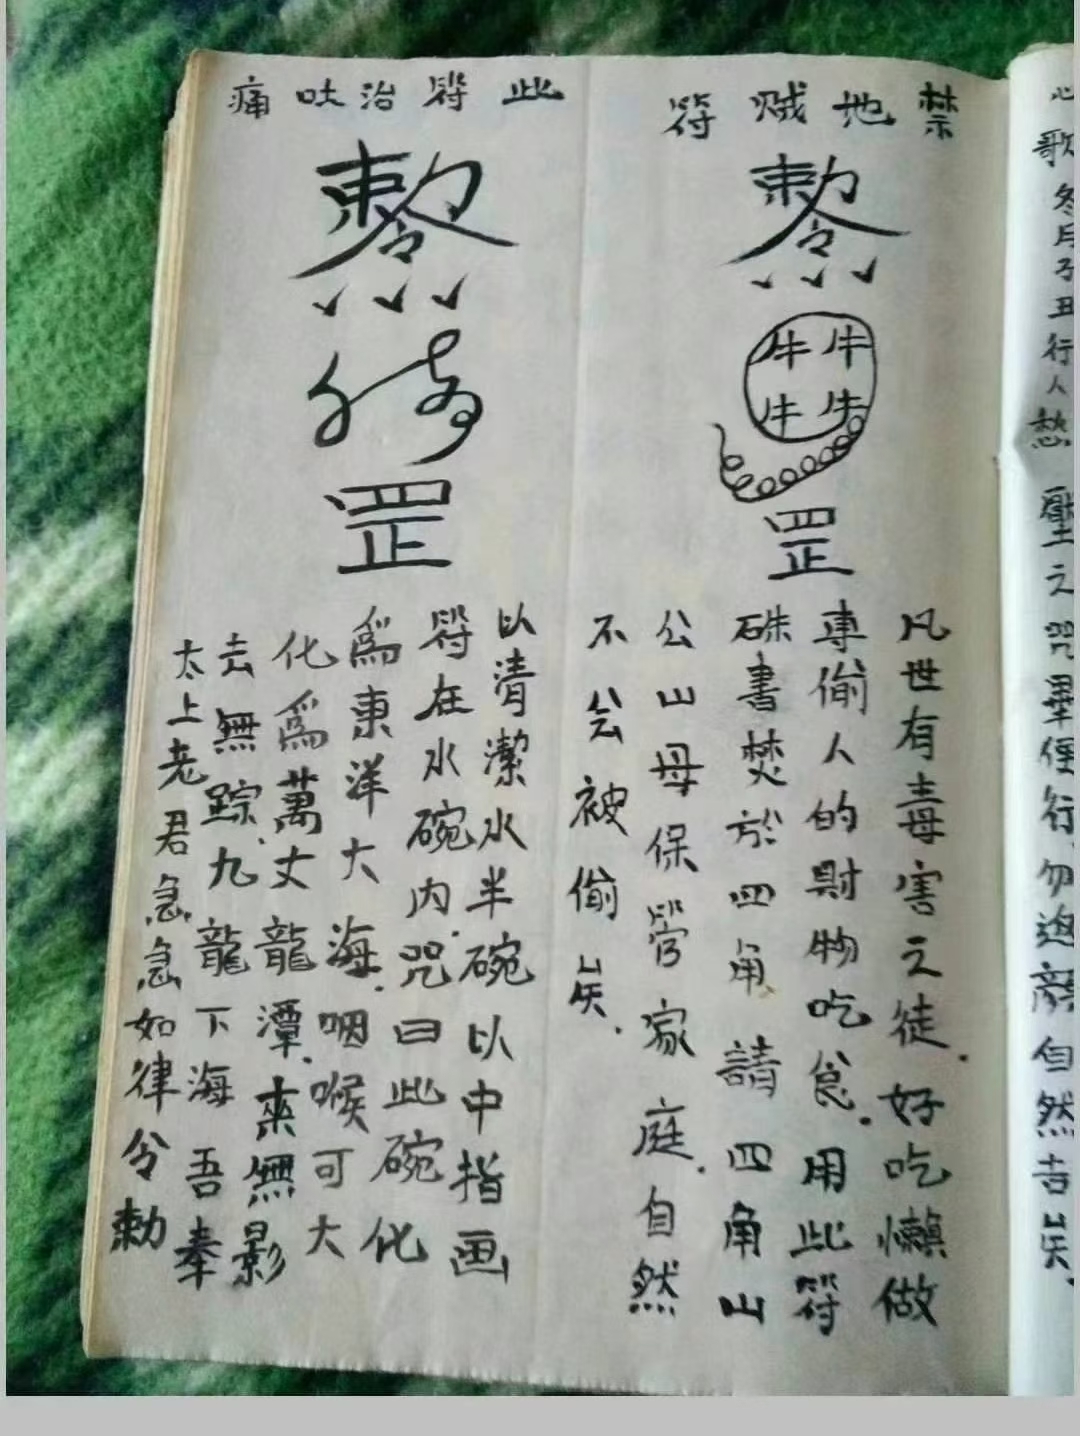 禁地贼符
敕令
牛牛
牛牛
罡
凡世有毒害之徒.好吃懒做
專偷人的財物吃食.用此符
硃書焚於四角請四角山
公山母保管家庭.自然
不会被偷矣.
此符治吐痛
敕令
罡
以清潔水半碗以中指画
符在水碗内.咒曰此碗化
為東洋大海.咽喉可大
化為萬丈龍潭.來無影
去無踪.九龍下海吾奉
太上老君急急如律令勅
心歌冬月子丑行人愁聖之咒畢任行勿迎顔自然吉矣.